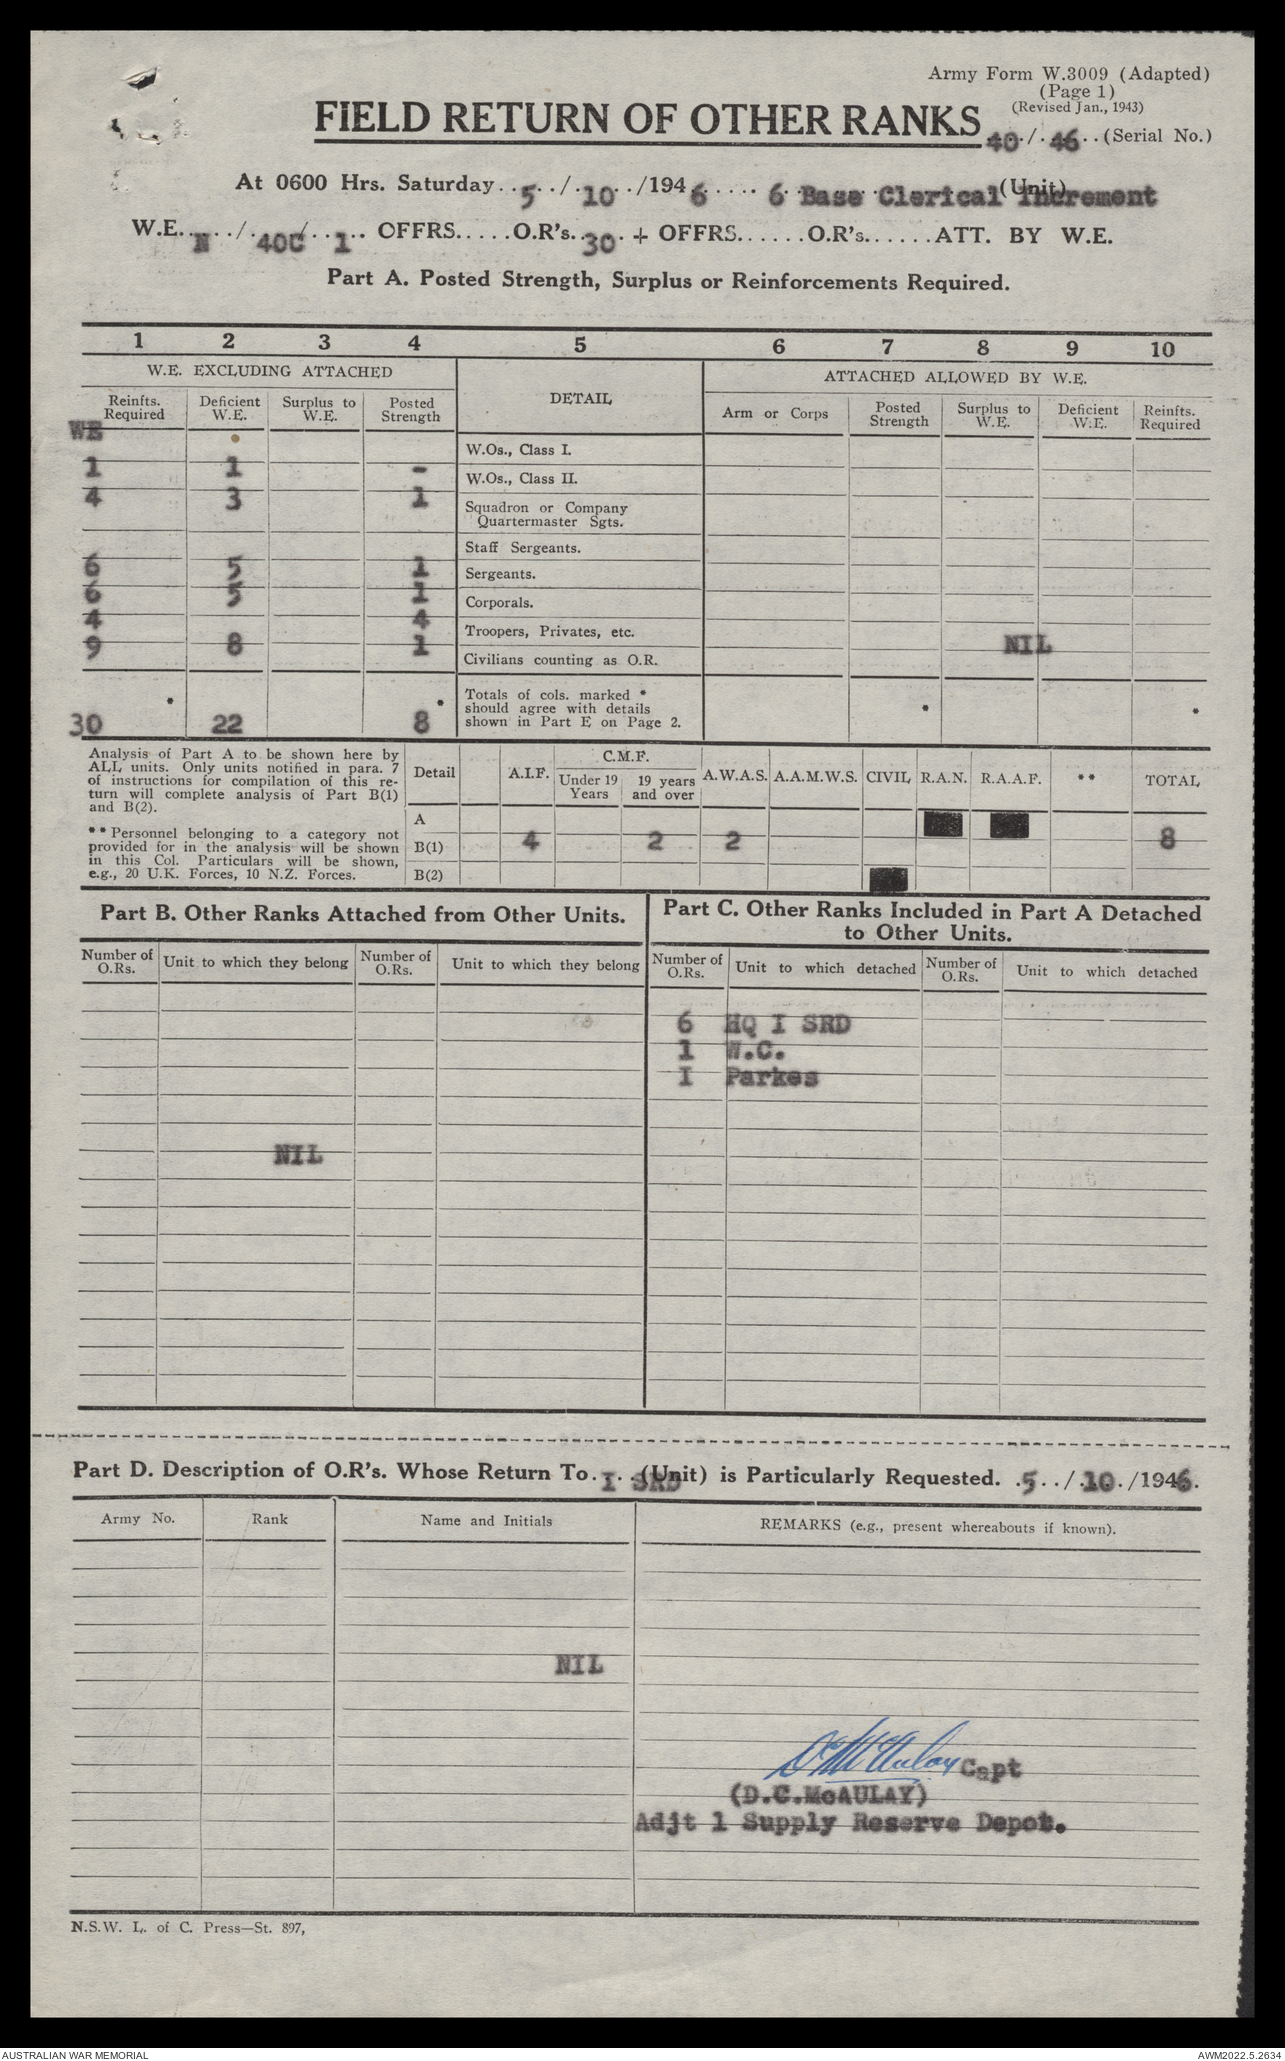 Army Form W.3009 (Adapted)
(Page 1)
(Revised Jan., 1943)
FIELD RETURN OF OTHER RANKS
40./.46..(Serial No.)
At 0600 Hrs. Saturday..5../.10../1946..... 6 Base Clerical Increment (Unit)
W.E..N../.40C/..1.. OFFRS.....O.R's..30.+ OFFRS......O.R's......ATT. BY W.E.
Part A. Posted Strength, Surplus or Reinforcements Required.
1 2 3 4 5 6 7 8 9 10
W.E. EXCLUDING ATTACHED DETAIL ATTACHED ALLOWED BY W.E.
Reinfts. Required Deficient W.E. Surplus to W.E. Posted Strength Arm or Corps Posted Strength Surplus to W.E. Deficient W.E. Reinfts. Required
WE
W.Os., Class I.
1 1 -
W.Os., Class II.
4 3 1
Squadron or Company
Quartermaster Sgts.
Staff Sergeants.
6 5 1
Sergeants.
6 5 1
Corporals.
4 4
Troopers, Privates, etc.
9 8 1 NIL
Civilians counting as O.R.
Totals of cols. marked *
should agree with details
shown in Part E on Page 2.
* * * *
30 22 8
Analysis of Part A to be shown here by
ALL units. Only units notified in para. 7
of instructions for compilation of this re-
turn will complete analysis of Part B(1)
and B(2).
** Personnel belonging to a category not
provided for in the analysis will be shown
in this Col. Particulars will be shown,
e.g., 20 U.K. Forces, 10 N.Z. Forces.
C.M.F.
Detail A.I.F. Under 19 Years 19 years and over A.W.A.S. A.A.M.W.S. CIVIL R.A.N. R.A.A.F. ** TOTAL
A
B(1) 4 2 2 8
B(2)
Part B. Other Ranks Attached from Other Units.
Part C. Other Ranks Included in Part A Detached
to Other Units.
Number of O.Rs. Unit to which they belong Number of O.Rs. Unit to which they belong Number of O.Rs. Unit to which detached Number of O.Rs. Unit to which detached
6 HQ I SRD
1 W.C.
I Parkes
NIL
Part D. Description of O.R's. Whose Return To.I SRD (Unit) is Particularly Requested. .5../.10./1946.
Army No. Rank Name and Initials REMARKS (e.g., present whereabouts if known).
NIL
D C McAulay Capt
(D.C.McAULAY)
Adjt 1 Supply Reserve Depot.
N.S.W. L. of C. Press—St. 897,
AUSTRALIAN WAR MEMORIAL AWM2022.5.2634